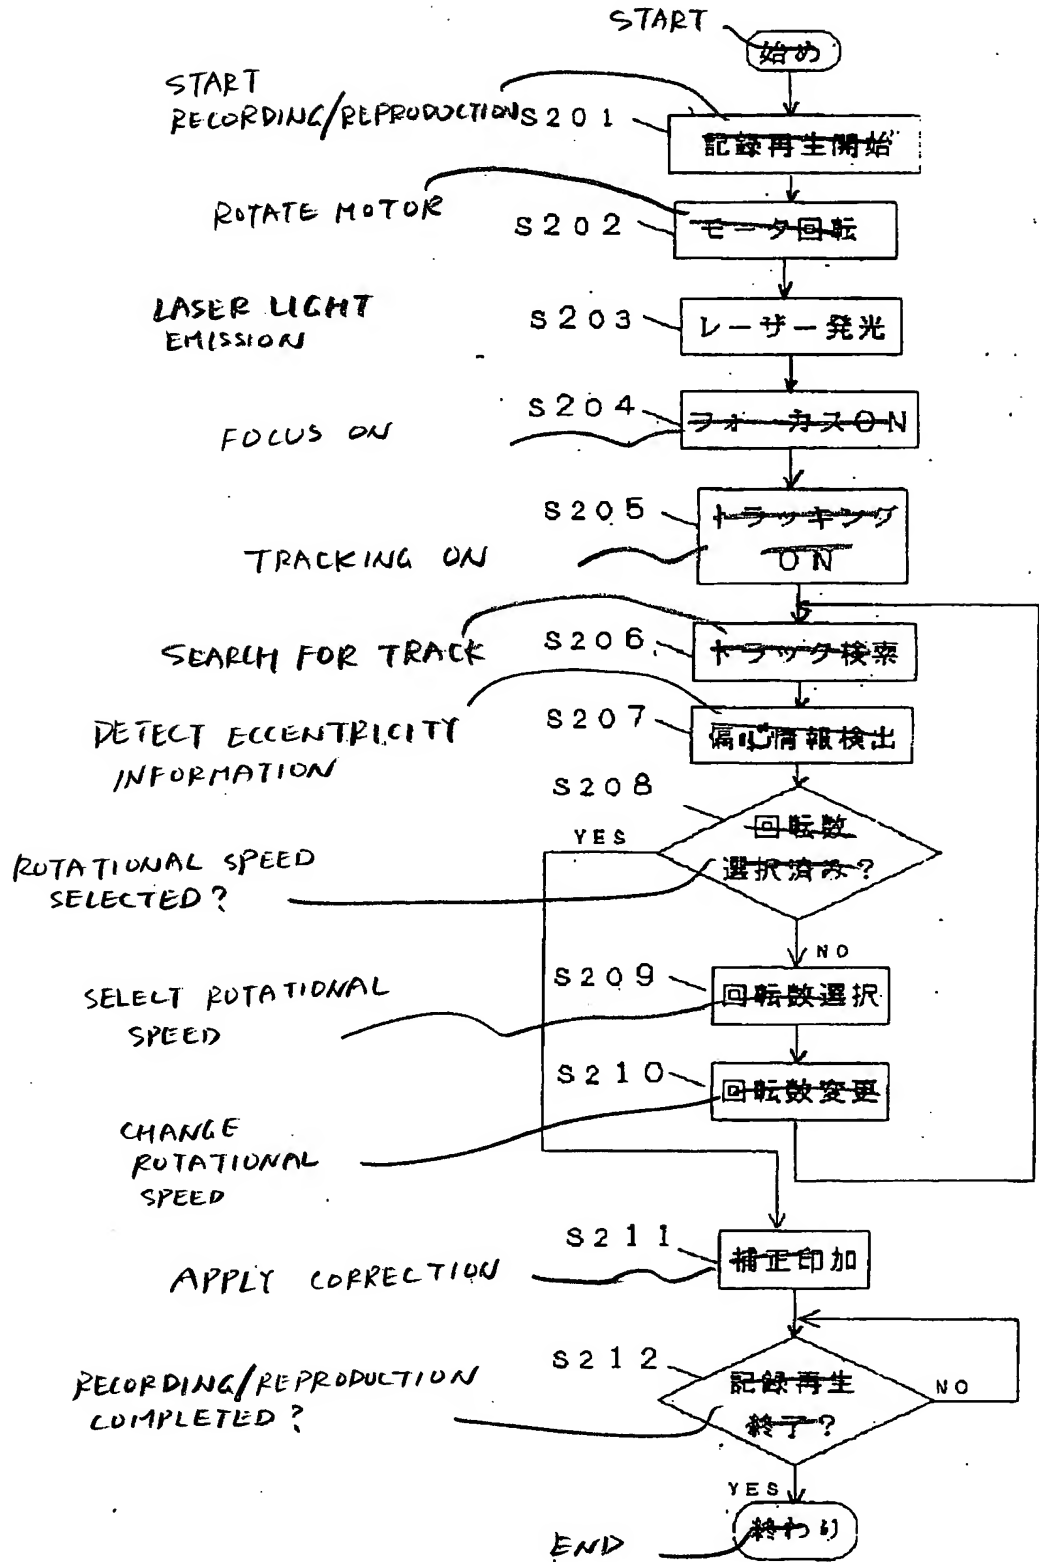 START
始め
START
RECORDING/REPRODUCTION
S201
記録再生開始
ROTATE MOTOR
S202
モータ回転
LASER LIGHT
EMISSION
S203
レーザー発光
FOCUS ON
S204
フォーカスON
TRACKING ON
S205
トラッキング
ON
SEARCH FOR TRACK
S206
トラック検索
DETECT ECCENTRICITY
INFORMATION
S207
偏心情報検出
S208
回転数
選択済み?
YES
NO
ROTATIONAL SPEED
SELECTED?
SELECT ROTATIONAL
SPEED
S209
回転数選択
S210
回転数変更
CHANGE
ROTATIONAL
SPEED
S211
補正印加
APPLY CORRECTION
S212
記録再生
終了?
NO
RECORDING/REPRODUCTION
COMPLETED?
YES
終わり
END